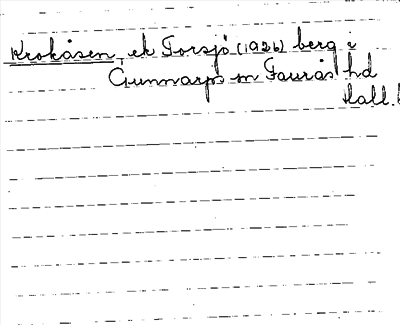 Krokåsen, ek Forsjö (1926) berg i
Gunnarps sn Faurås hd
Hall.